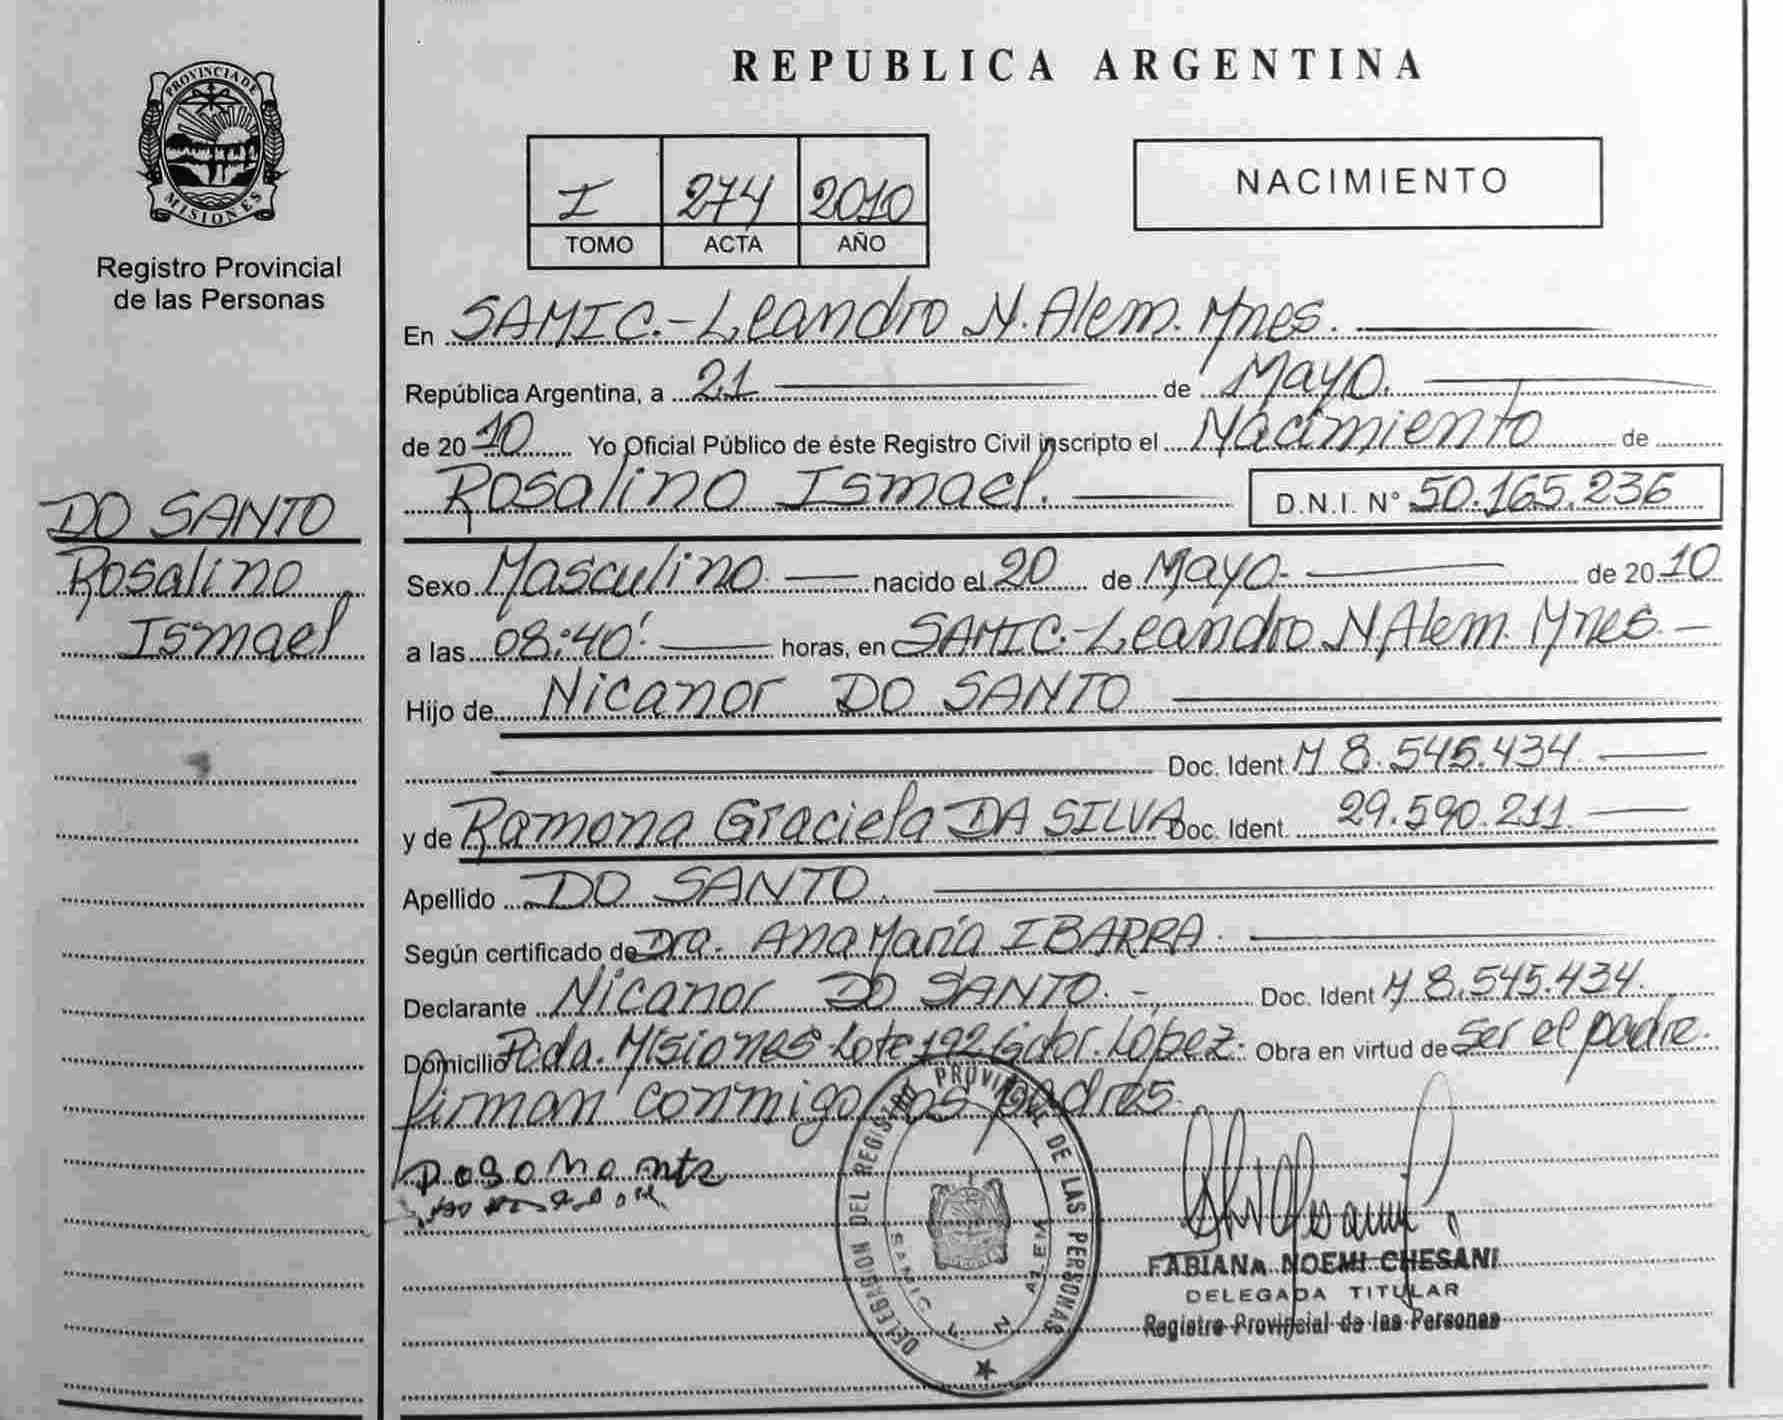 PROVINCIA DE
MISIONES
Registro Provincial
de las Personas
DO SANTO
Rosalino
Ismael
REPUBLICA ARGENTINA
I 274 2010
TOMO ACTA AÑO
NACIMIENTO
En SAMIC.-Leandro N. Alem. Mnes.
República Argentina, a 21 de Mayo.
de 2010 Yo Oficial Público de éste Registro Civil inscripto el Nacimiento de
Rosalino Ismael. D.N.I. N° 50.165.236
Sexo Masculino. nacido el 20 de Mayo- de 2010
a las 08:40' horas, en SAMIC.-Leandro N. Alem. Mnes.-
Hijo de Nicanor DO SANTO
Doc. Ident. M 8.545.434
y de Ramona Graciela DA SILVA Doc. Ident. 29.590.211.
Apellido DO SANTO.
Según certificado de Dra. Ana María IBARRA.
Declarante Nicanor DO SANTO.- Doc. Ident M 8.545.434.
Domicilio Pcda. Misiones Lote 192 Gdor. López. Obra en virtud de ser el padre.
Firman conmigo los padres.
DELEGACION DEL REGISTRO PROVINCIAL DE LAS PERSONAS
SAMIC L. N. ALEM
FABIANA NOEMI CHESANI
DELEGADA TITULAR
Registro Provincial de las Personas